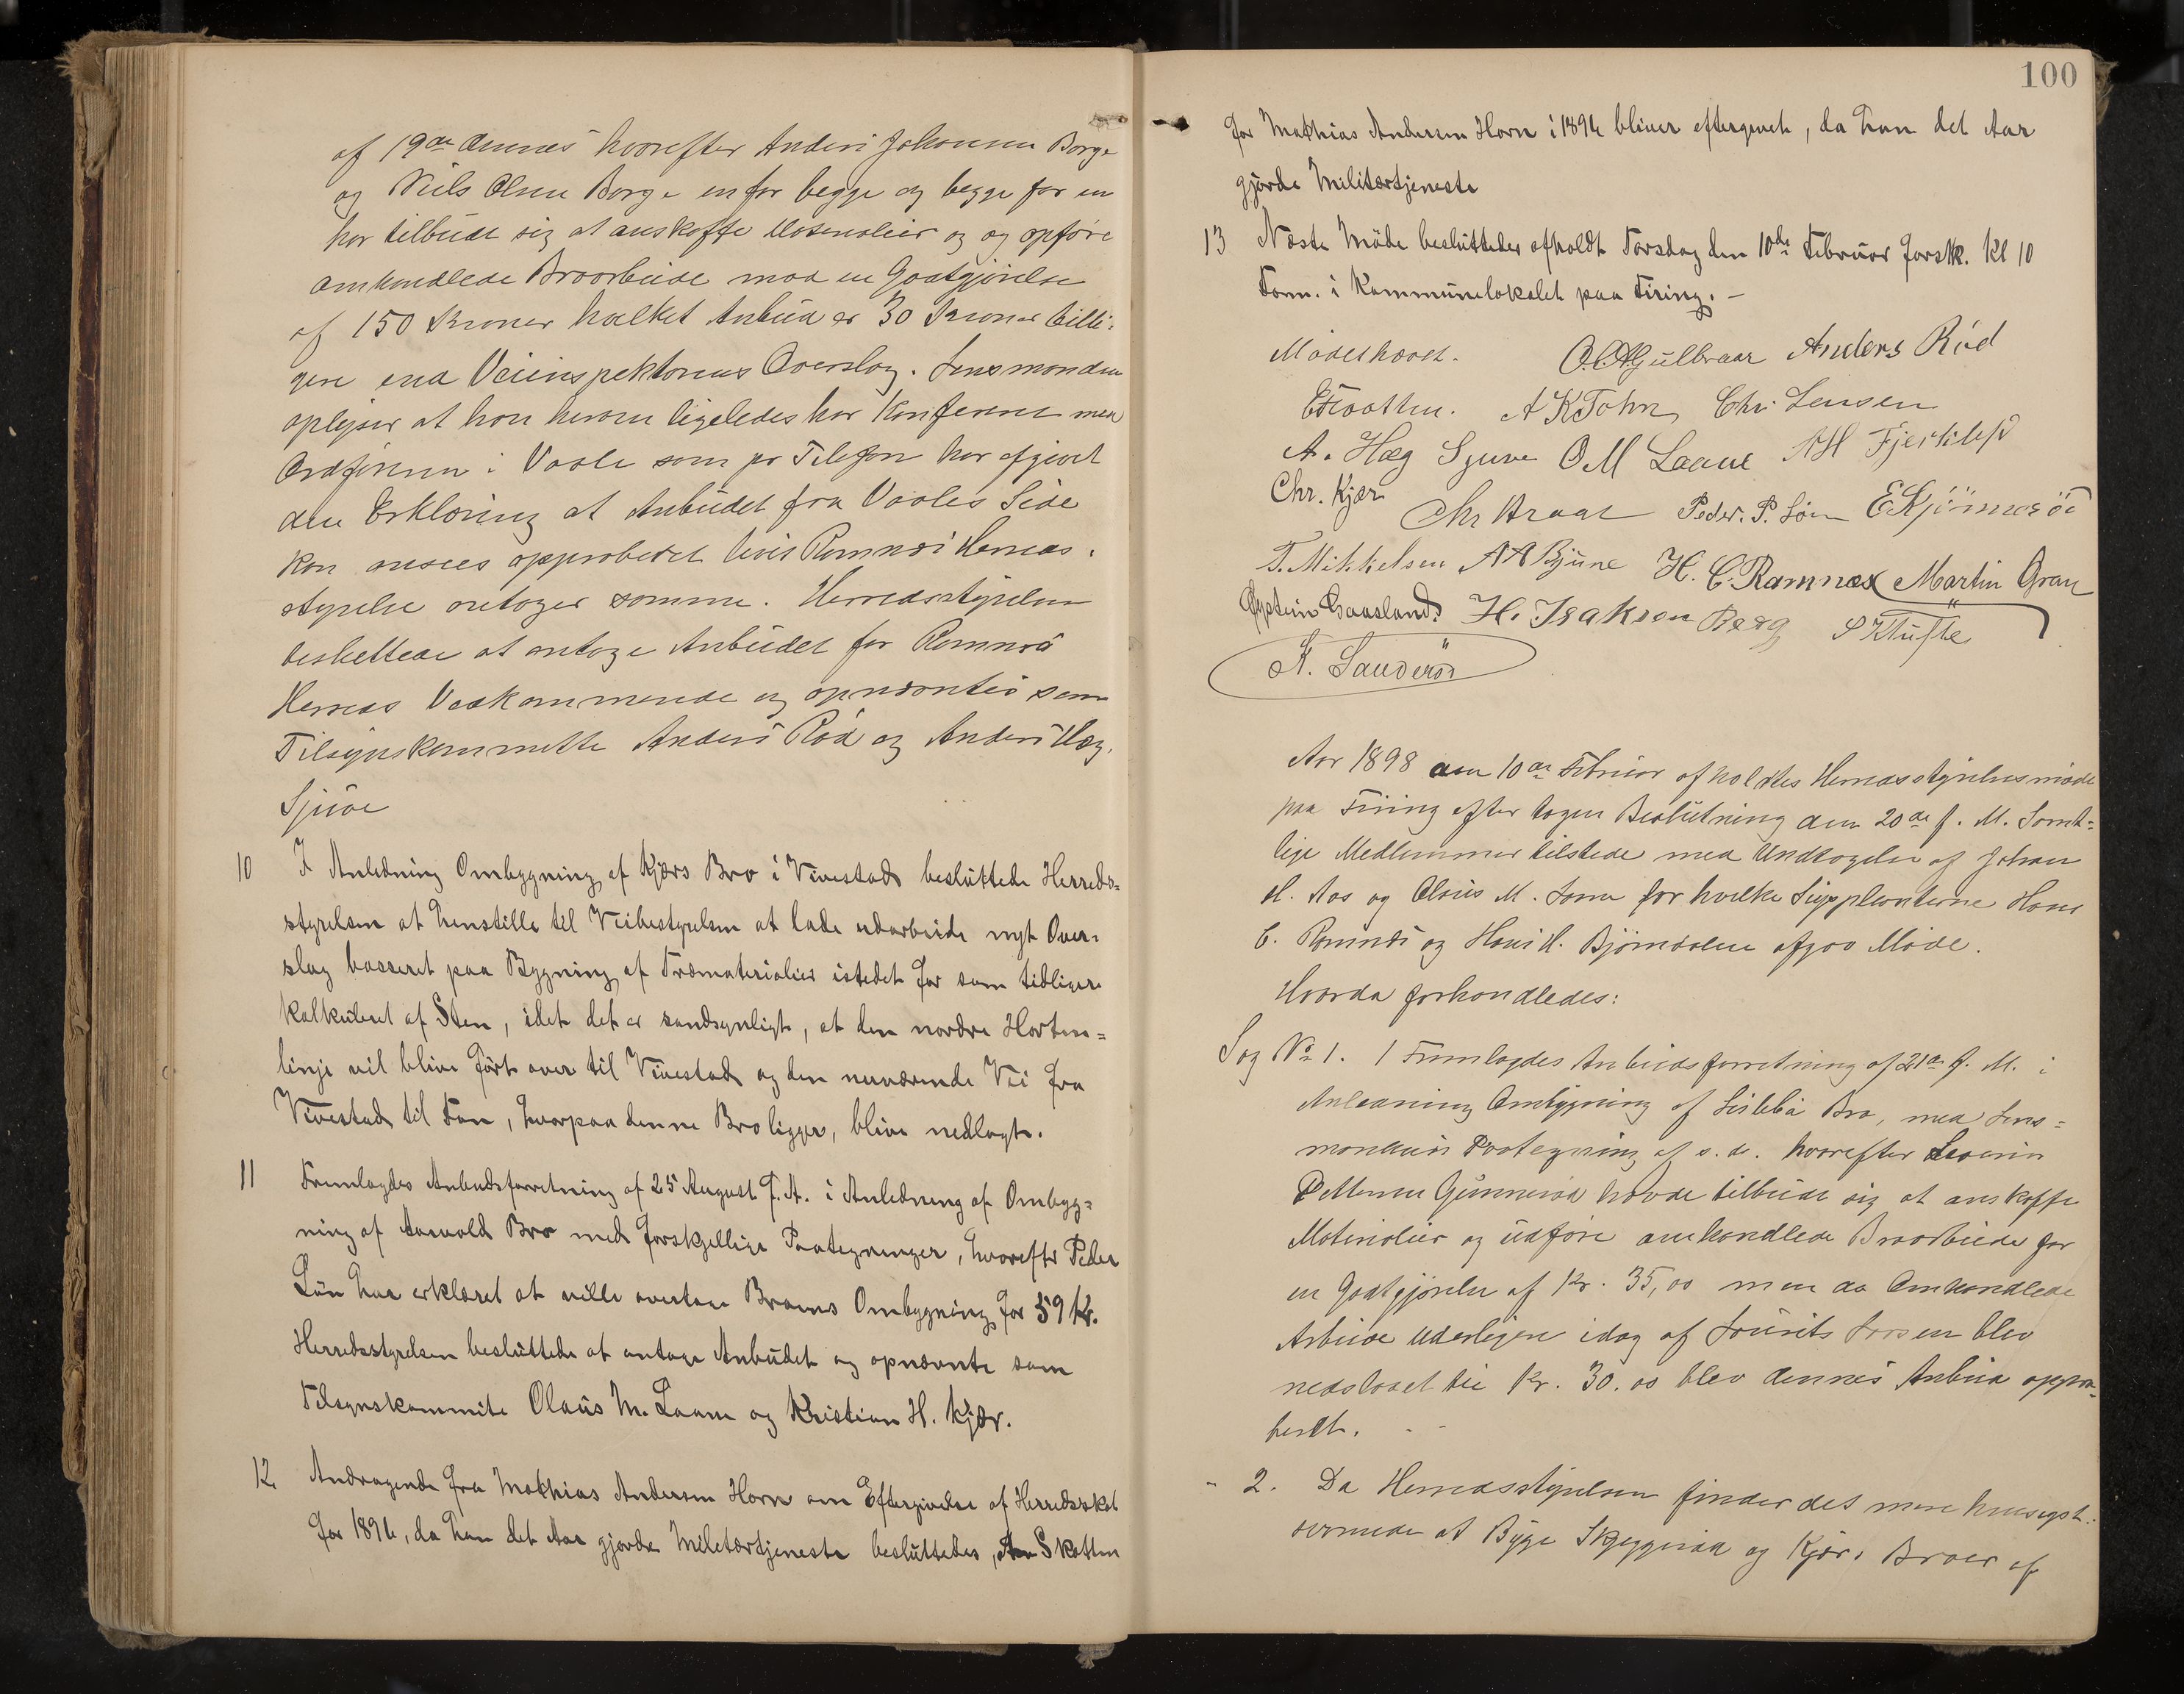 af 19de dennes hvorefter Anders Johansen Borge
og Niels Olsen Borge en for begge og begge for en
har tilbudt sig at anskaffe Materialier og og opføre
omhandlede Broarbeide mod en Godtgjørelse
af 150 Kroner hvilket Anbud er 30 Kroner billi-
gere end Veiinspektørens Overslag. Lensmanden
oplyser at han herom ligeledes har konfereret med
Ordføreren i Vaale som pr Telefon har afgivet
den Erklæring at Anbudet fra Vaales Side
kan ansees approberet hvis Ramnæs Herreds-
styrelse antager samme. Herredsstyrelsen
besluttede at antage Anbudet for Ramnæs
Herreds Vedkommende og opnævntes som
Tilsynskommitte Anders Rød og Anders Hæg.
Sjue
10 I Anledning Ombygning af Kjærs Bro i Vivestad besluttede Herreds=
styrelsen at henstille til Veibestyrelsen at lade udarbeide nyt Over-
slag basseret paa Bygning af Træmaterialier istedet for som tidligere
kalkuleret af Sten, idet det er sandsynligt, at den nordre Horten=
linje vil blive ført over til Vivestad og den nuværende Vei fra
Vivestad til Fon, hvorpaa denne Bro ligger, blive nedlagt.
11 Fremlagdes Anbudsforretning af 25 August f. A. i Anledning af Ombygg=
ning af Aasvold Bro med forskjellige Paategninger, hvorefter Peder
Løn har erklæret at ville overtage Broens Ombygning for 59 Kr.
Herredsstyrelsen besluttede at antage Anbudet og opnævnte som
Tilsynskommite Olaus M. Laane og Kristian H. Kjær.
12 Andragende fra Mathias Andersen Horn om Eftergivelse af Herredsskat
for 1896, da han det Aar gjorde Militærtjeneste besluttedes, At Skatten
100
for Mathias Andersen Horn i 1896 bliver eftergivet, da han det Aar
gjorde Militærtjeneste
13 Næste Møde besluttedes afholdt Torsdag den 10de Februar førstk. Kl 10
Form. i Kommunelokalet paa Firing. -
Mødet hævet. O. A. Gulbraar Anders Rød
A K Tohn Chr. Lensen
A. Hæg Sjuve O M Laane A H Fjerkilsø
Chr. Kjær Chr Araas Peder. P. Løn E Kjønnerød
T. Mikkelsen A A Bjune H. C. Ramnæs Martin Gran
Øystein Gaasland. H. Isaksen Berg S K Tufte
K. Sanderød
Aar 1898 den 10de Februar afholdtes Herredsstyrelsesmøde
paa Firing efter tagen Beslutning den 20de f. M. Samt=
lige Medlemmer tilstede med Undtagelse af Johan
H. Aas og Olaus M. Laane for hvilke Suppleanterne Hans
C. Ramnæs og Hans H. Bjørndalen afgav Møde.
Hvorda forhandledes:
Sag No 1. 1 Fremlagdes Anbudsforretning af 21de f. M. i
Anledning Ombygning af Lislebø Bro, med Lens=
mandens Paategning af s. d. hvorefter Severin
Pettersen Gunnerød havde tilbudt sig at anskaffe
Materialier og udføre omhandlede Broarbeide for
en Godtgjørelse af Kr. 35,00 men da Omhandlede
Arbeide yderligere idag af Laurits Larsen blev
nedslaaet til Kr. 30.00 blev dennes Anbud appro-
beret.
- 2. Da Herredsstyrelsen finder det mere hensigt-
svarende at Bygge Skjeggerød og Kjærs Broer af